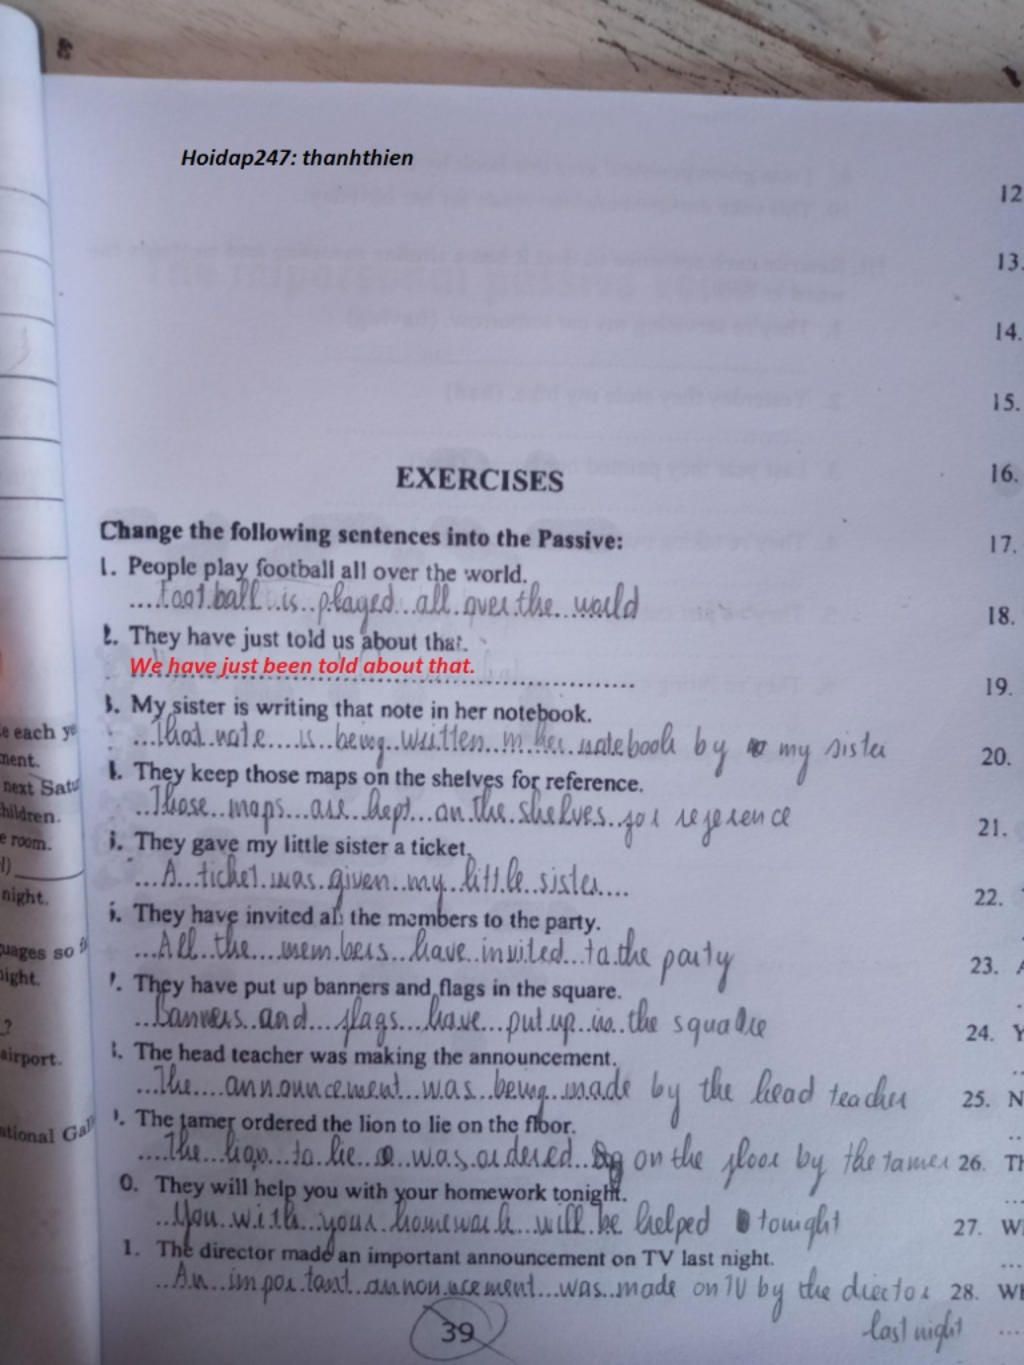 Hoidap247: thanhthien
EXERCISES
Change the following sentences into the Passive:
1. People play football all over the world.
....Football..is..played..all.over.the..world
2. They have just told us about that.
We have just been told about that.
3. My sister is writing that note in her notebook.
...That.note....is..being..written..in.her.notebook by my sister
They keep those maps on the shelves for reference.
..Those..maps...are..kept...on.the.shelves..for reference
They gave my little sister a ticket.
...A..ticket.was.given..my..little..sister....
They have invited all the members to the party.
...All..the....members..have.invited...to.the party
They have put up banners and flags in the square.
...Banners..and....flags...have...put.up..in..the square
The head teacher was making the announcement.
...The....announcement..was..being..made by the head teacher
The tamer ordered the lion to lie on the floor.
....The..lion...to lie was.ordered... on the floor by the tamer
0. They will help you with your homework tonight.
..You.with..your.homework...will.be helped tonight
1. The director made an important announcement on TV last night.
..An..important..announcement...was..made on TV by the director
last night
39
12
13.
14.
15.
16.
17.
18.
19.
20.
21.
22.
23.
24. Y
25. N
26. Th
27. W
28. Wh
e each
next
children.
e room.
night.
uages so
night.
?
airport.
ational